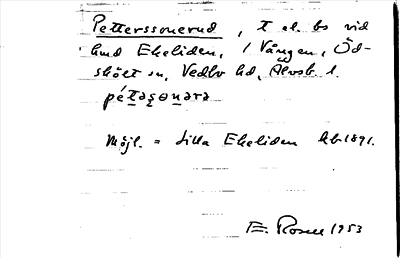 Petterssonerud, t el. bs vid
hmd Ekeliden, i Vången, Öd-
skölt sn, Vedbo hd, Älvsb. l.
pétəsonərə
Möjl. = Lilla Ekeliden kb 1891.
E. Rosell 1953